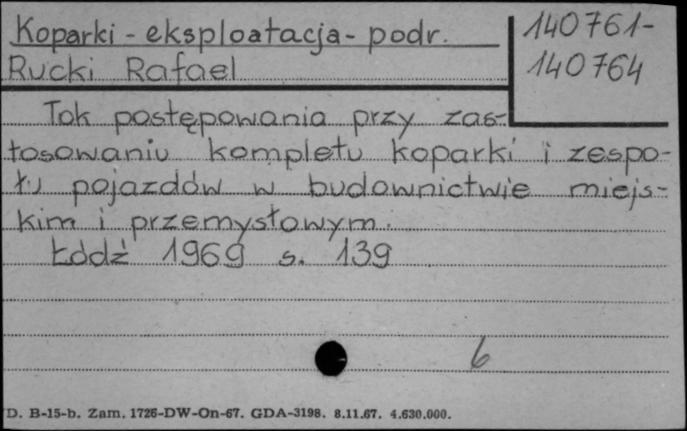 Koparki - eksploatacja - podr.
140761-
140764
Rucki Rafael
Tok postępowania przy zas-
tosowaniu kompletu koparki i zespo-
łu pojazdów w budownictwie miejs-
kim i przemysłowym.
Łódź 1969 s. 139
6
D. B-15-b. Zam. 1726-DW-On-67. GDA-3198. 8.11.67. 4.630.000.